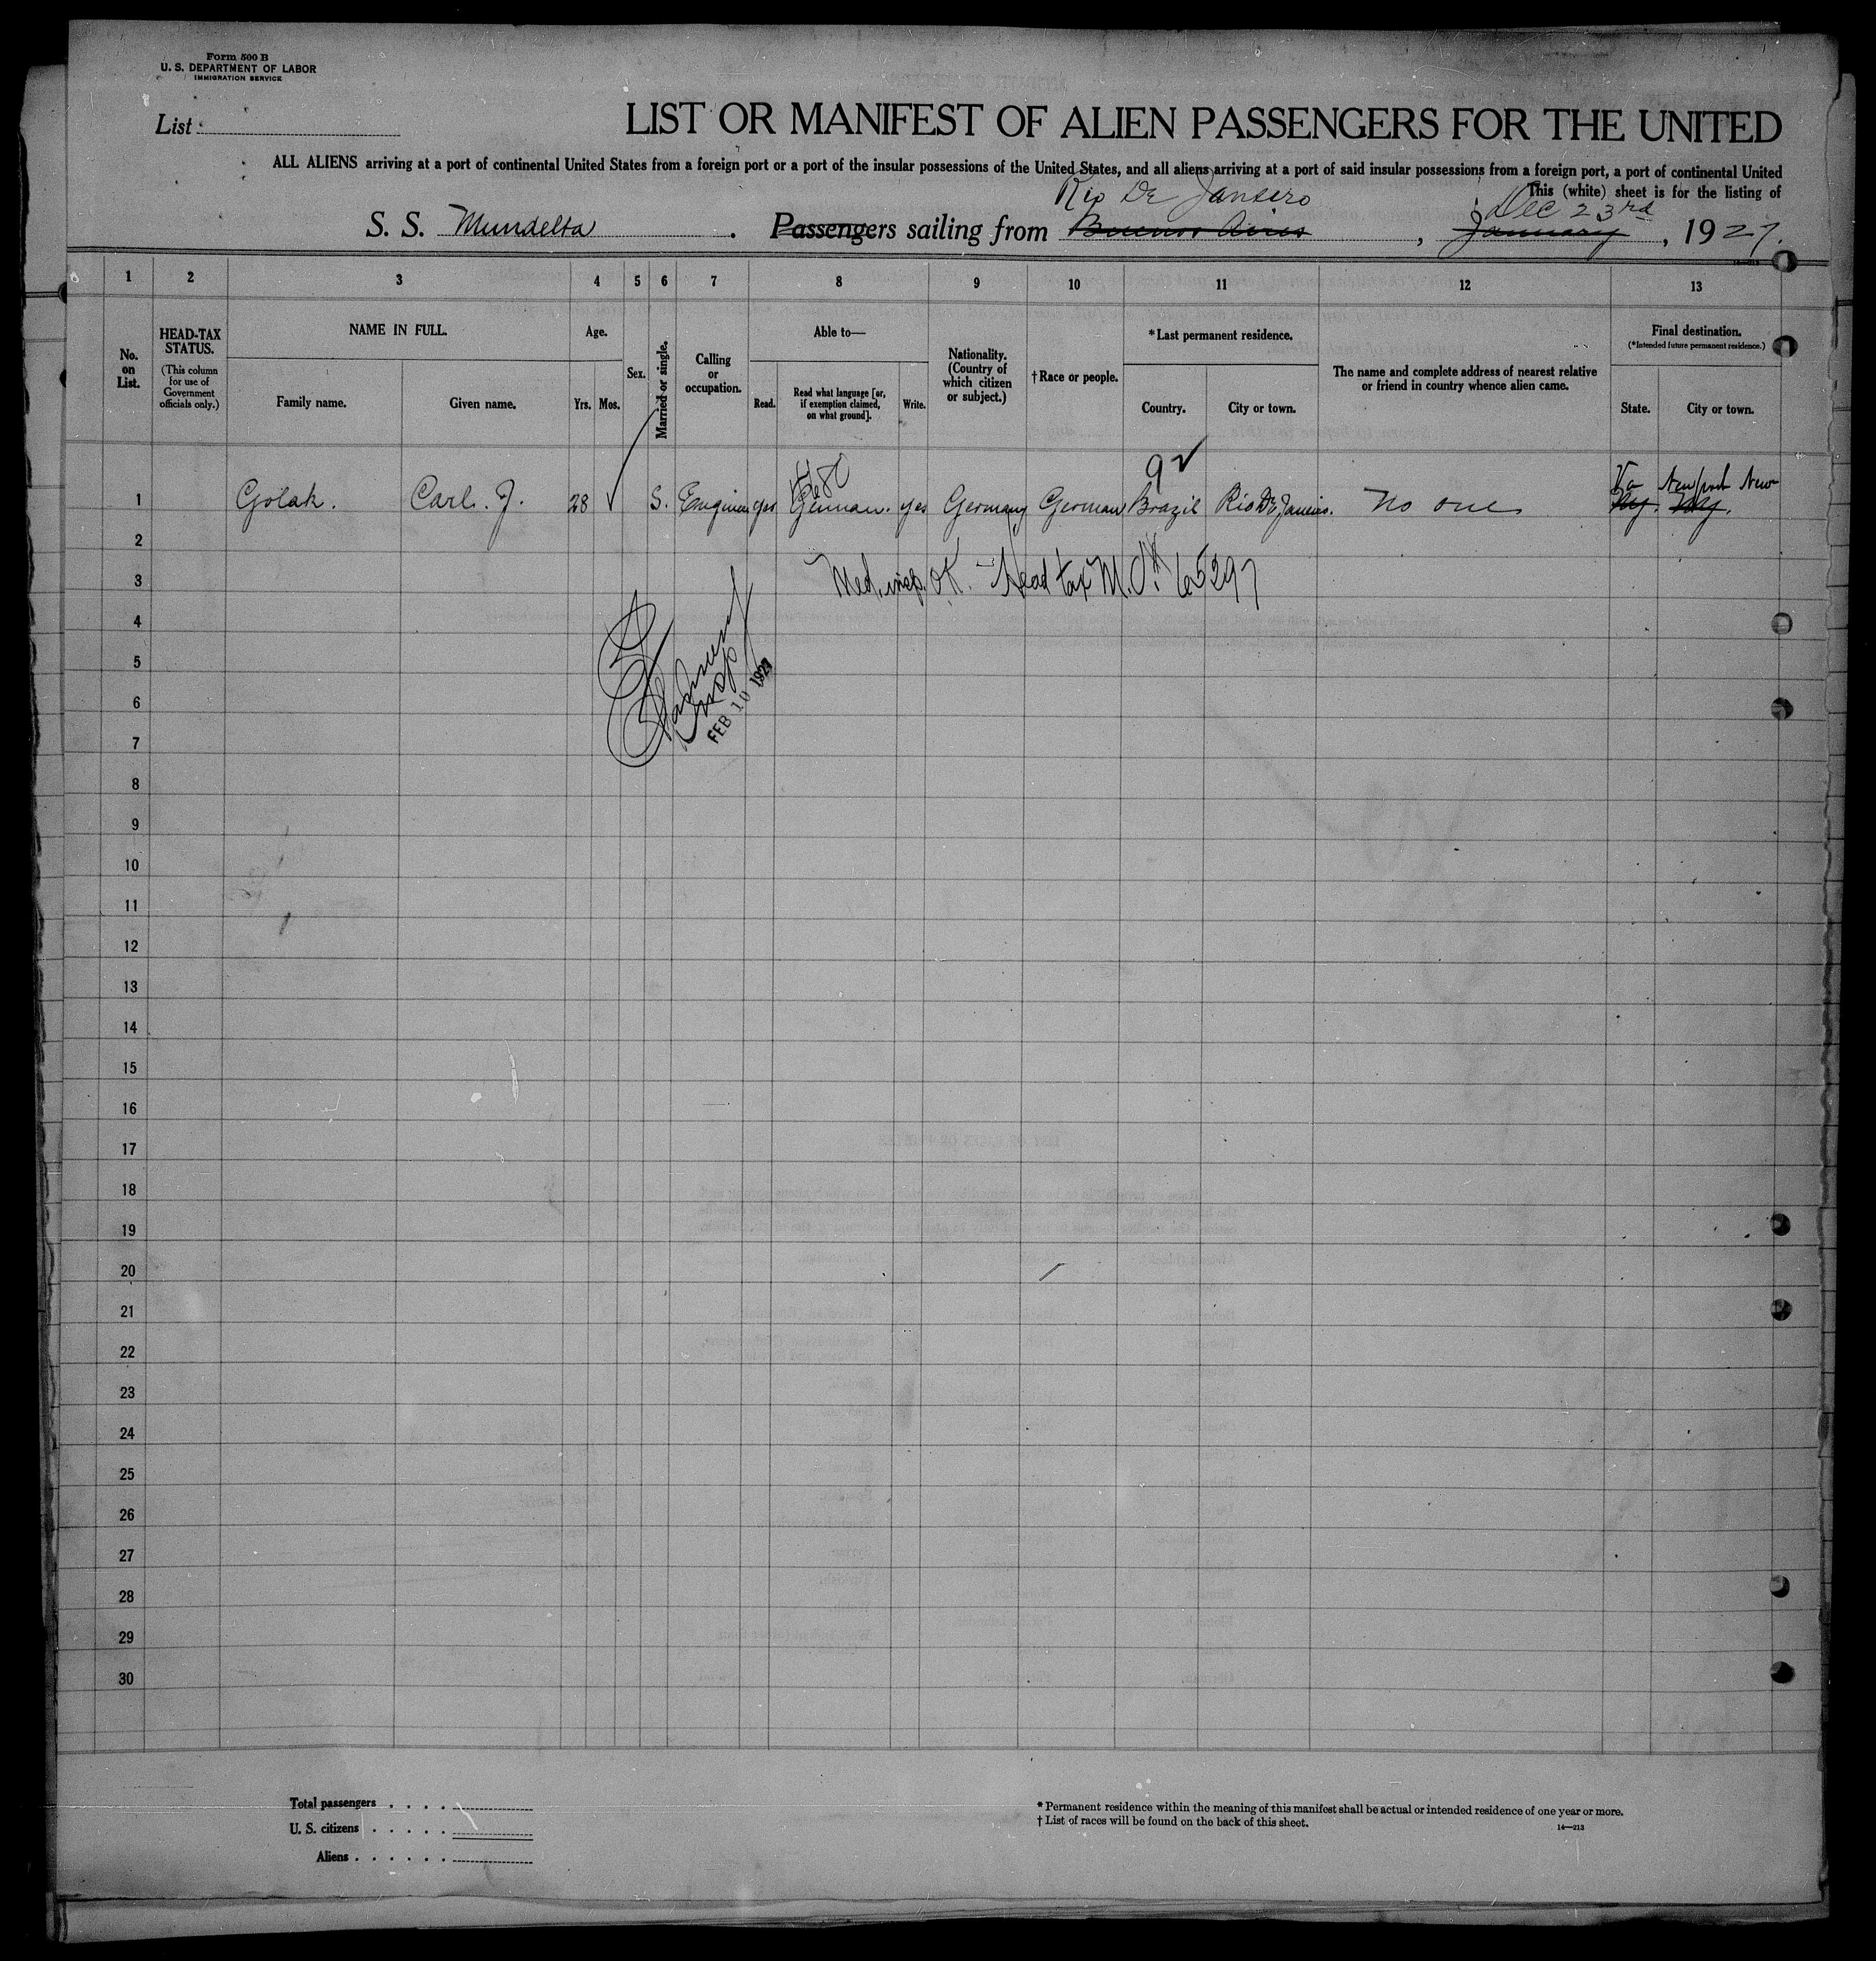 Form 500 B
U. S. DEPARTMENT OF LABOR
IMMIGRATION SERVICE
List
LIST OR MANIFEST OF ALIEN PASSENGERS FOR THE UNITED
ALL ALIENS arriving at a port of continental United States from a foreign port or a port of the insular possessions of the United States, and all aliens arriving at a port of said insular possessions from a foreign port, a port of continental United
This (white) sheet is for the listing of
Rio De Janeero
Dec 23rd
S. S. Mundelta . Passengers sailing from Buenos Aires , January , 1927.
1 2 3 4 5 6 7 8 9 10 11 12 13
No. on List.
HEAD-TAX STATUS.
(This column for use of Government officials only.)
NAME IN FULL.
Family name. Given name.
Age.
Yrs. Mos.
Sex.
Married or single.
Calling or occupation.
Able to—
Read. Read what language [or, if exemption claimed, on what ground]. Write.
Nationality. (Country of which citizen or subject.)
† Race or people.
* Last permanent residence.
Country. City or town.
The name and complete address of nearest relative or friend in country whence alien came.
Final destination.
(*Intended future permanent residence.)
State. City or town.
9 ✓
Va Newport New
1 Golak. Carl. J. 28 ✓ S. Engineer yes German. yes Germany German Brazil Rio De Janeiro. No one Ny. Ny.
2
Med. insp. OK. Head tax M.O. # 65297
3
4
5
6
FEB 10 1927
7
8
9
10
11
12
13
14
15
16
17
18
19
20
21
22
23
24
25
26
27
28
29
30
Total passengers . . . .
U. S. citizens . . . . .
Aliens . . . . . .
* Permanent residence within the meaning of this manifest shall be actual or intended residence of one year or more.
† List of races will be found on the back of this sheet.
14—213